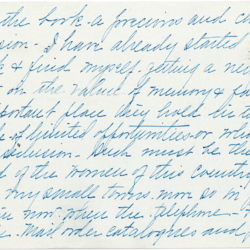 the book - a precious and c
sion - I have already started
k & find myself getting a ne
- on the value of memory & fa
portant place they hold in t
k of limited opportunities or me
seclusion - Such must be the
d of the women of this countr
my small towns. more so in
in now, when the telephone -
e - Mail order catalogues and